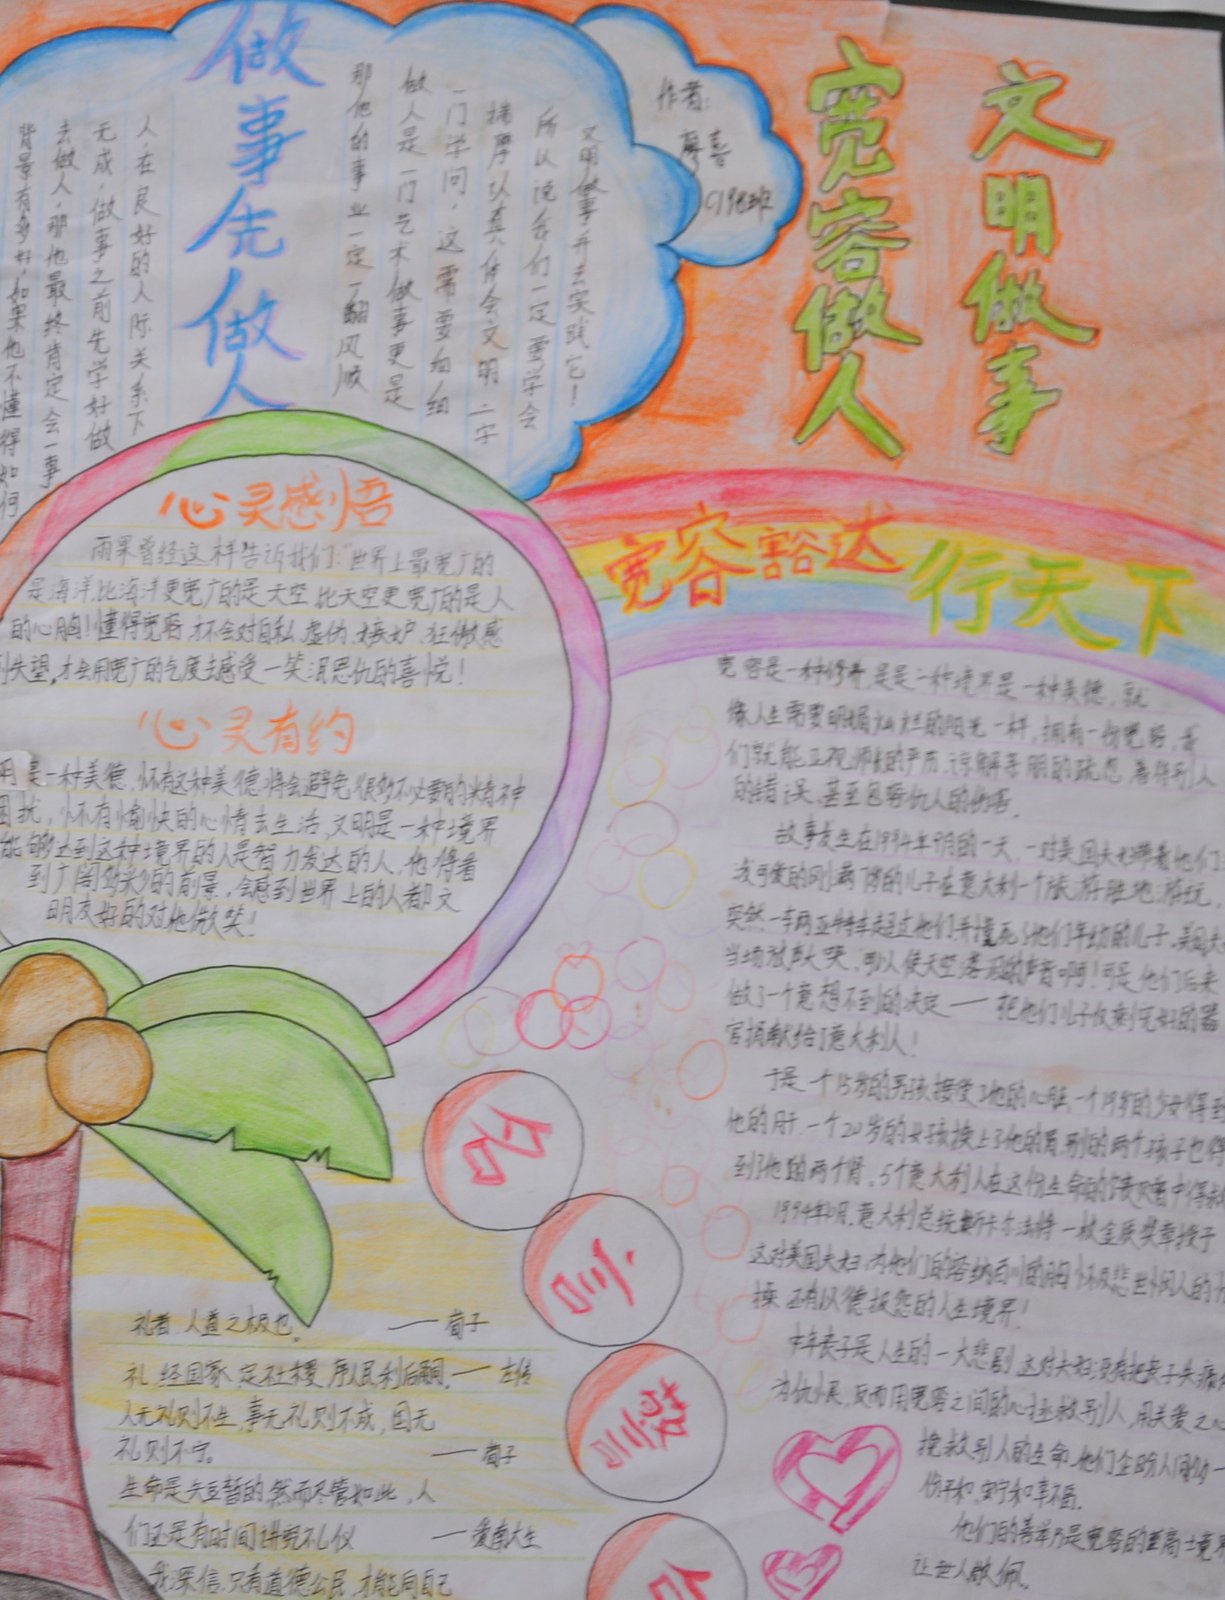 文明做事
宽容做人
作者:
廖喜
C198班
做事先做人
人,在良好的人际关系下
无成,做事之前先学好做
去做人,那他最终肯定会一事
背景有多好,如果他不懂得如何
文明做事并去实践它!
所以说我们一定要学会
揣摩认真体会文明二字
一门学问,这需要细细
做人是一门艺术做事更是
那他的事业一定一翻风顺
心灵感悟
雨果曾经这样告诉我们:"世界上最宽广的
是海洋,比海洋更宽广的是天空,比天空更宽广的是人
的心胸!懂得宽容,才不会对自私、虚伪、嫉妒、狂傲感
到失望,才会用宽广的气度去感受一笑泯恩仇的喜悦!
心灵有约
明是一种美德,怀有这种美德将会避免很多不必要的精神
困扰,怀有愉快的心情去生活,文明是一种境界
能够达到这种境界的人是智力发达的人,他得看
到广阔的前景,会感到世界上的人都文
明友好的对他微笑!
宽容豁达行天下
宽容是一种修养,是一种境界是一种美德,就
像人生需要明媚灿烂的阳光一样,拥有一份宽容,我
们就能正视师长的严厉,谅解亲朋的疏忽,善待别人
的错误,甚至包容仇人的伤害。
故事发生在1994年9月的一天,一对美国夫妇带着他们
可爱的刚满7岁的儿子在意大利一个旅游胜地游玩,
突然一车两亚特车超过他们并撞死了他们年幼的儿子,美国夫
当场放声大哭,可以使天空落泪的声音啊!可是他们后来
做了一个意想不到的决定——把他们儿子仅剩完好的器
官捐献给了意大利人!
于是一个15岁的男孩接受了他的心脏,一个19岁的少女得到
他的肝,一个20岁的女孩换上了他的胃,别的两个孩子也得
到了他的两个肾。5个意大利人在这份生命的馈赠中得救
1994年10月,意大利总统斯卡尔法将一枚金质奖章授予
这对美国夫妇,为他们的容纳百川的胸怀及悲世悯人的
操,还有以德报怨的人生境界!
中年丧子是人生的一大悲剧,这对夫妇没有把丧子失痛
为仇恨,反而用宽容之间的心拯救别人,用关爱之心
挽救别人的生命,他们企盼人间的一
份平和,安宁和幸福。
他们的善举乃是宽容的至高境界
让世人敬佩。
名
言
警
句
礼者,人道之极也。——荀子
礼,经国家,定社稷,序人民,利后嗣。——左传
人无礼则不生,事无礼则不成,国无
礼则不宁。——荀子
生命是短暂的,然而尽管如此,人
们还是有时间讲究礼仪——爱默生
我深信,只有道德公民,才能向自己